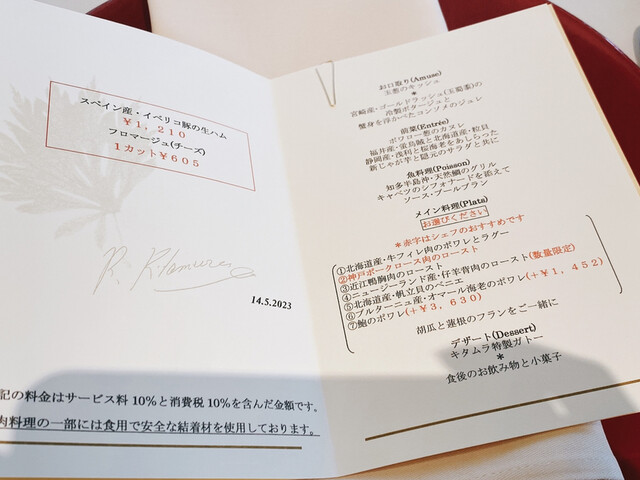 スペイン産・イベリコ豚の生ハム
￥１，２１０
フロマージュ(チーズ)
１カット￥６０５
14.5.2023
記の料金はサービス料 10%と消費税 10%を含んだ金額です。
肉料理の一部には食用で安全な結着材を使用しております。
お口取り(Amuse)
玉葱のキッシュ
*
宮崎産・ゴールドラッシュ(玉蜀黍)の
冷製ポタージュと
蟹身を浮かべたコンソメのジュレ
前菜(Entrée)
ポワロー葱のカヌレ
福井産・蛍烏賊と北海道産・粒貝
静岡産・浅利と桜海老をあしらった
新じゃが芋と隠元のサラダと共に
魚料理(Poisson)
知多半島沖・天然鯛のグリル
キャベツのシフォナードを添えて
ソース・ブールブラン
メイン料理(Plats)
お選びください
*赤字はシェフのおすすめです
①北海道産・牛フィレ肉のポワレとラグー
②神戸ポークロース肉のロースト
③近江鴨胸肉のロースト
④ニュージーランド産・仔羊骨肉のロースト(数量限定)
⑤北海道産・帆立貝のベニエ
⑥ブルターニュ産・オマール海老のポワレ(＋￥１，４５２)
⑦鮑のポワレ(＋￥３，６３０)
胡瓜と蓮根のフランをご一緒に
デザート(Dessert)
キタムラ特製ガトー
*
食後のお飲み物と小菓子